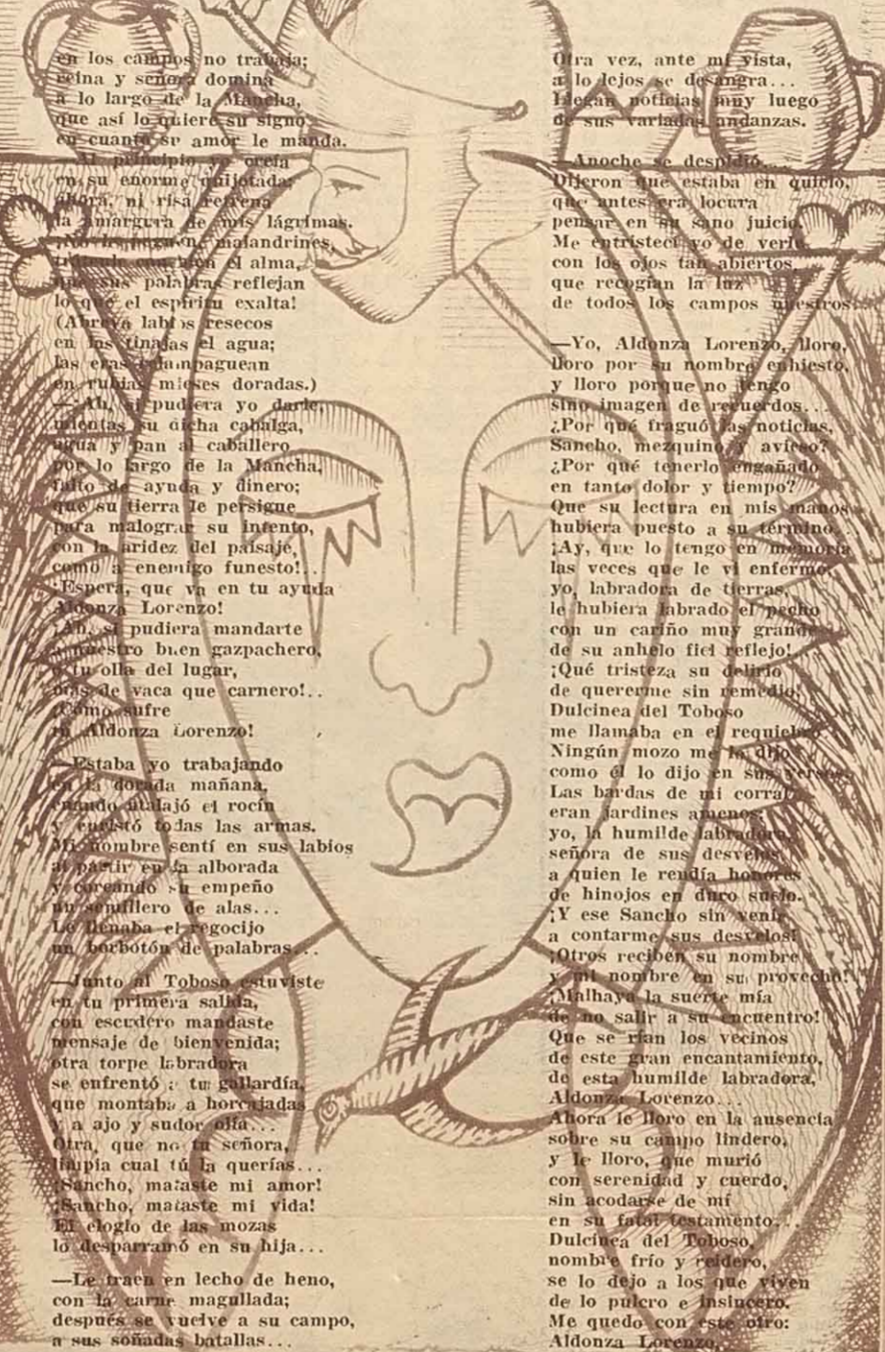 en los campos no trabaja;
reina y señora domina
a lo largo de la Mancha,
que así lo quiere su signo
en cuanto su amor le manda.
Al principio yo creía
en su enorme quijotada;
ahora, ni risa refrena
la amargura de mis lágrimas.
malandrines,
el alma,
que sus palabras reflejan
lo que el espíritu exalta!
(Abreva labios resecos
en las tinajas el agua;
las eras relampaguean
en rubias mieses doradas.)
—¡Ah, si pudiera yo darle,
mientas su dicha cabalga,
agua y pan al caballero
por lo largo de la Mancha,
falto de ayuda y dinero;
que su tierra le persigue
para malograr su intento,
con la aridez del paisaje,
como a enemigo funesto!..
¡Espera, que va en tu ayuda
Aldonza Lorenzo!
¡Ah, si pudiera mandarte
a nuestro buen gazpachero,
a tu olla del lugar,
más de vaca que carnero!..
¡Cómo sufre
tu Aldonza Lorenzo!
—Estaba yo trabajando
en la dorada mañana,
cuando atalajó el rocín
y enristó todas las armas.
Mi nombre sentí en sus labios
al partir en la alborada
y coreando su empeño
un semillero de alas...
Le llenaba el regocijo
un borbotón de palabras...
—Junto al Toboso estuviste
en tu primera salida,
con escudero mandaste
mensaje de bienvenida;
otra torpe labradora
se enfrentó a tu gallardía,
que montaba a horcajadas
y a ajo y sudor olía...
Otra, que no tu señora,
limpia cual tú la querías...
¡Sancho, mataste mi amor!
¡Sancho, mataste mi vida!
El elogio de las mozas
lo desparramó en su hija...
—Le traen en lecho de heno,
con la carne magullada;
después se vuelve a su campo,
a sus soñadas batallas...
Otra vez, ante mi vista,
a lo lejos se desangra...
Llegan noticias muy luego
de sus variadas andanzas.
—Anoche se despidió...
Dijeron que estaba en quicio,
que antes era locura
pensar en su sano juicio.
Me entristecí yo de verle
con los ojos tan abiertos,
que recogían la luz
de todos los campos nuestros.
—Yo, Aldonza Lorenzo, lloro,
lloro por su nombre enhiesto,
y lloro porque no tengo
sino imagen de recuerdos...
¿Por qué fraguó las noticias,
Sancho, mezquino y avieso?
¿Por qué tenerlo engañado
en tanto dolor y tiempo?
Que su lectura en mis manos
hubiera puesto a su término.
¡Ay, que lo tengo en memoria
las veces que le vi enfermo;
yo, labradora de tierras,
le hubiera labrado el pecho
con un cariño muy grande
de su anhelo fiel reflejo!
¡Qué tristeza su delirio
de quererme sin remedio!
Dulcinea del Toboso
me llamaba en el requiebro
Ningún mozo me lo dijo
como él lo dijo en sus versos.
Las bardas de mi corral
eran jardines amenos;
yo, la humilde labradora,
señora de sus desvelos,
a quien le rendía honores
de hinojos en duro suelo.
¡Y ese Sancho sin venir
a contarme sus desvelos!
¡Otros reciben su nombre
y mi nombre en su provecho!
¡Malhaya la suerte mía
de no salir a su encuentro!
Que se rían los vecinos
de este gran encantamiento,
de esta humilde labradora,
Aldonza Lorenzo...
Ahora le lloro en la ausencia
sobre su campo lindero,
y le lloro, que murió
con serenidad y cuerdo,
sin acodarse de mí
en su fatal testamento...
Dulcinea del Toboso,
nombre frío y reidero,
se lo dejo a los que viven
de lo pulcro e insincero.
Me quedo con este otro:
Aldonza Lorenzo.